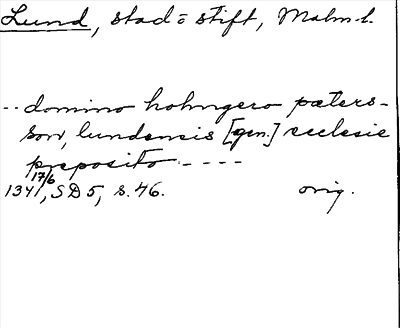 Lund, stad o stift, Malm-l.
-- domino holmgero pæters-
son, lundensis [gen.] ecclesie
preposito ----
17/6
1341, SD 5, s. 46. orig.